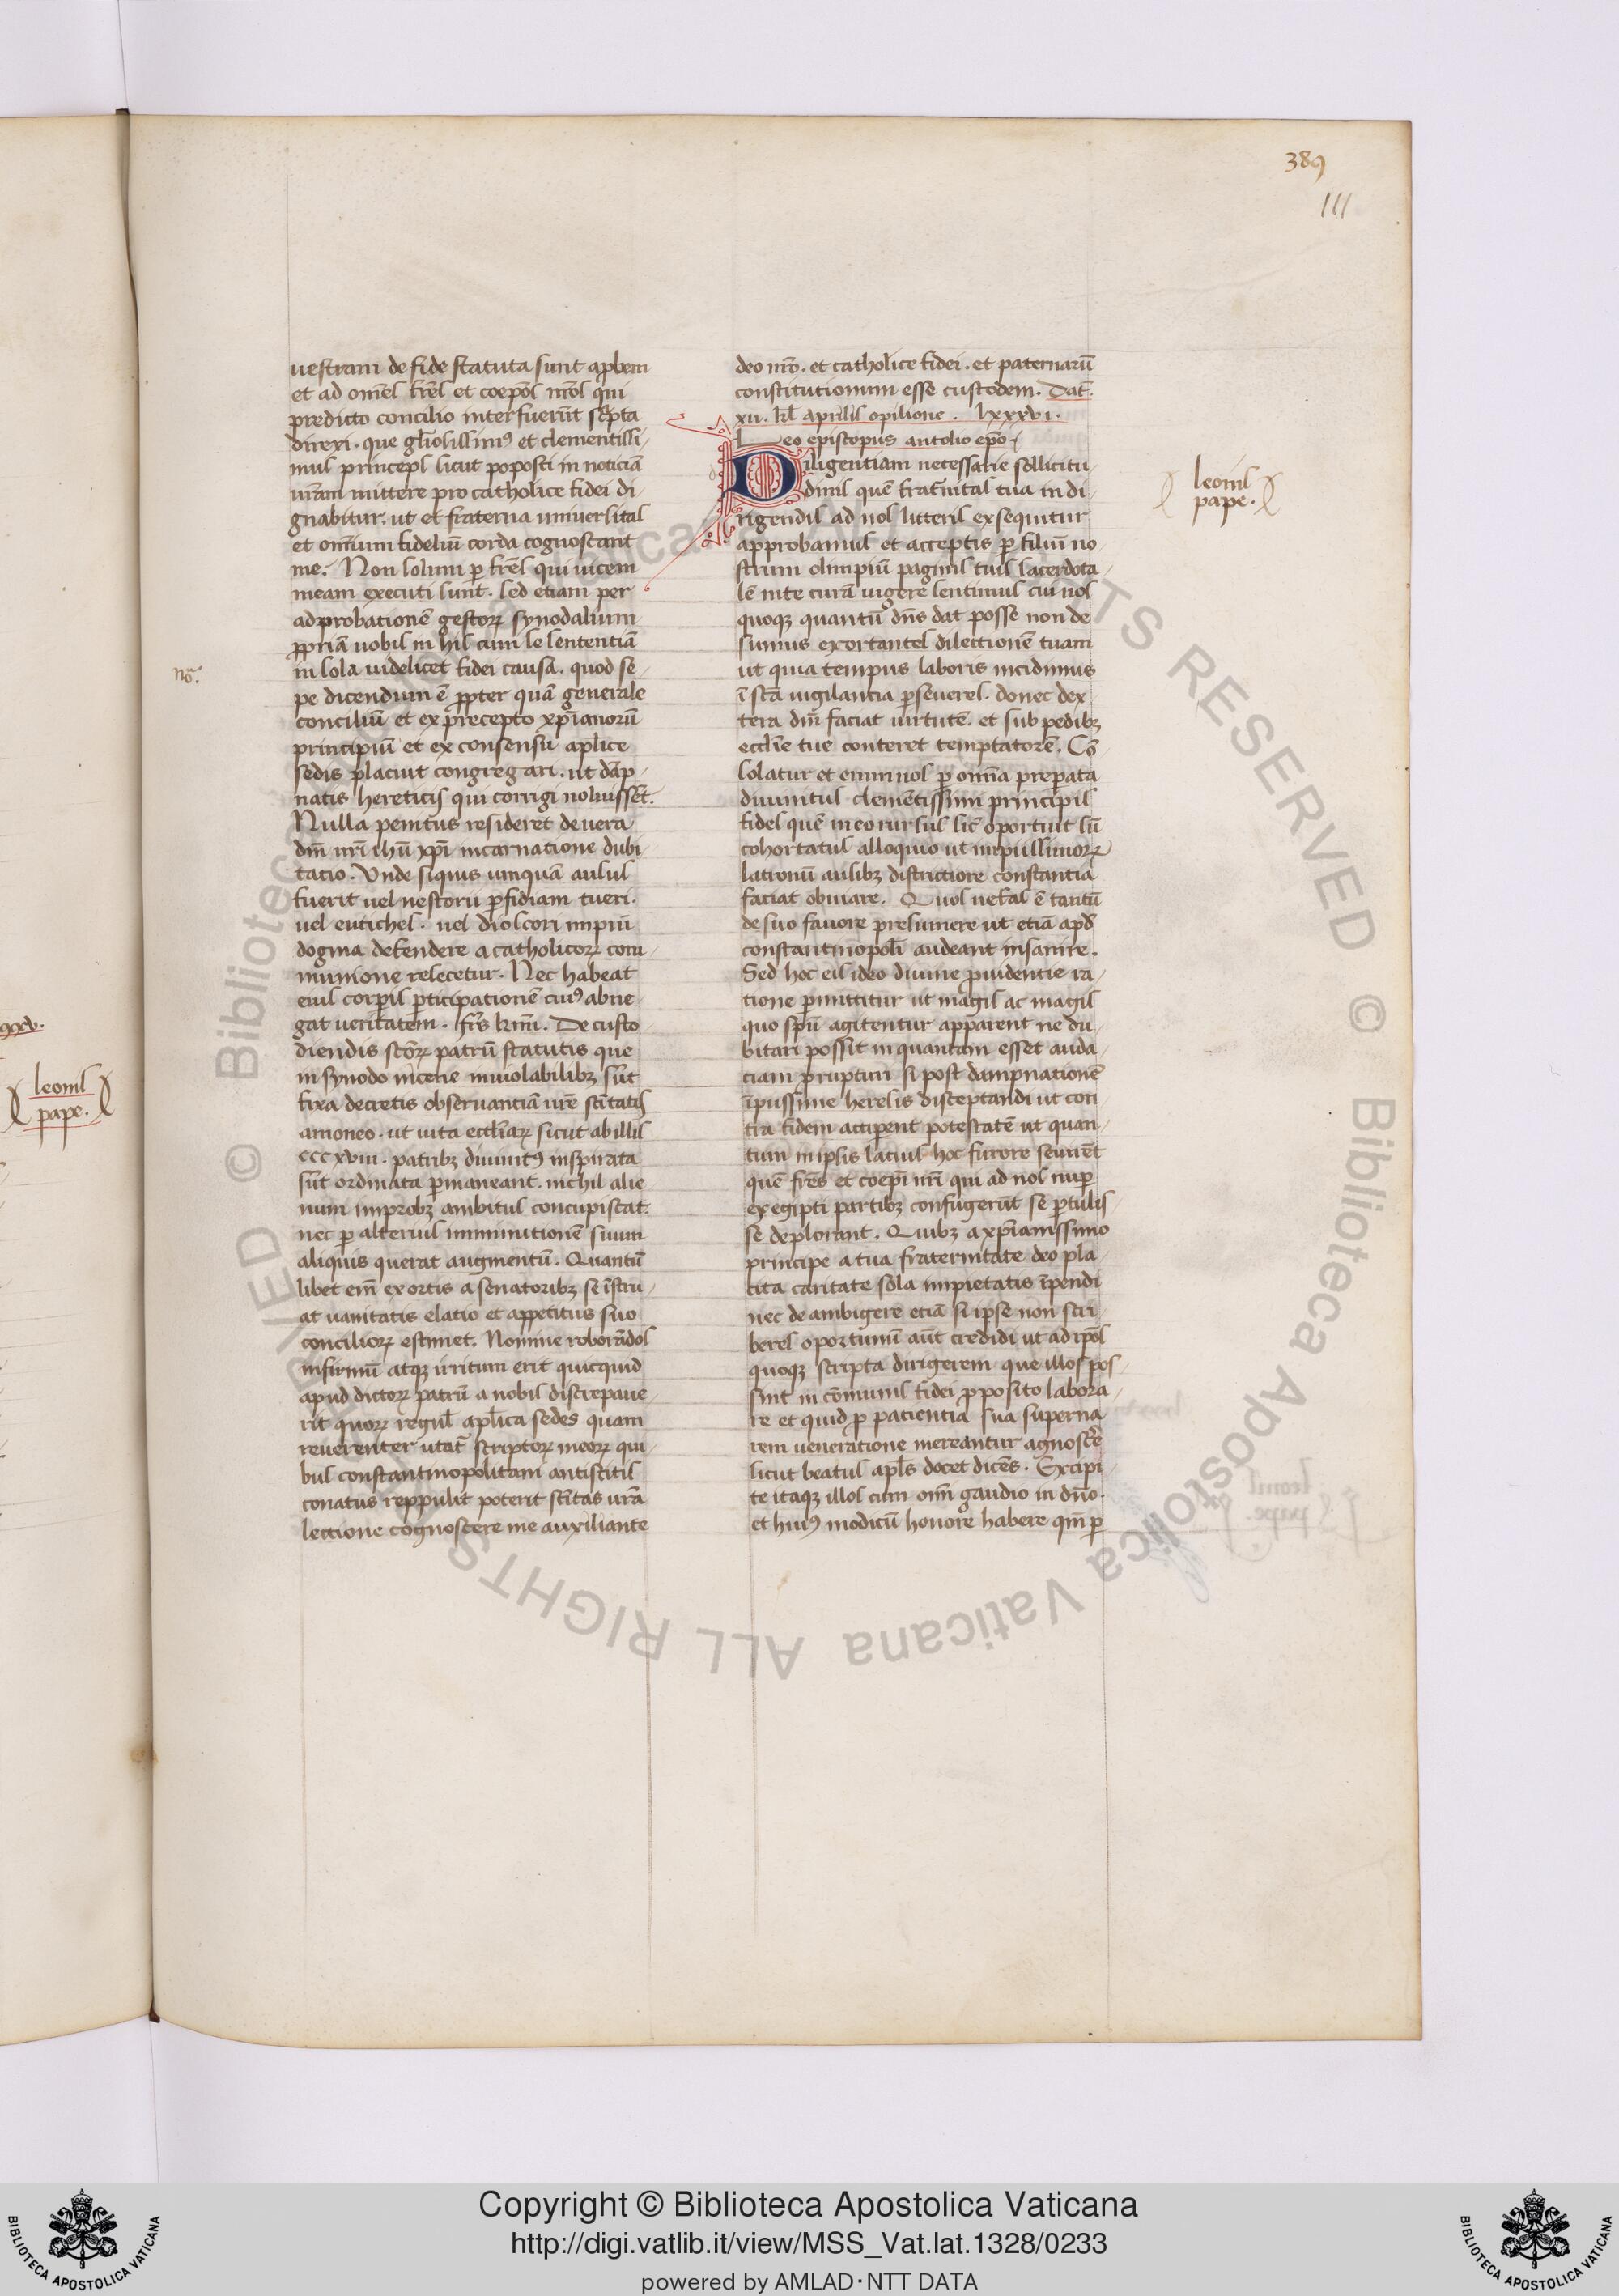 389
111
uestram de fide statuta sunt approbem
et ad omēs frēs et coepōs nrōs qui
predicto concilio interfuerūt scpta
direxi . que gl̄iosissim9 et clementissi-
mus princeps sicut poposci in noticiā
urām mittere pro catholice fidei di-
gnabitur . ut et fraterna uniuersitas
et omīum fideliū corda cognoscant
me . Non solum p frēs qui uicem
meam executi sunt . sed etiam per
adprobationē gestorꝝ synodalium
ppriā uobis in his cum se sententiā
in sola uidelicet fidei causa . quod se-
pe dicendum ē ppter quā generale
conciliū et ex precepto xp̄ianorū
principiū et ex consensu aplīce
sedis placuit congregari . ut dāp-
natis hereticis qui corrigi noluissēt .
Nulla penitus resideret de uera
dnī nrī ihū xp̄i incarnatione dubi-
tatio . Vnde siquis umquā ausus
fuerit uel nestorii pfidiam tueri .
uel eutiches . uel dioscori impiū
dogma defendere a catholicorꝝ com-
munione resecetur . Nec habeat
eius corpis pticipationē cui9 abne-
gat ueritatem . frēs kmī . De custo-
diendis scōrꝝ patrū statutis que
in synodo nicene inuiolabilibꝫ sūt
fixa decretis obseruantiā urē scītatis
amoneo . ut uita eccliarꝝ sicut ab illis
cccxviii . patribꝫ diuinit9 inspirata
sūt ordinata pmaneant . nichil alie-
num improbꝫ ambitus concupiscat .
nec p alterius imminutionē suum
aliquis querat augmentū . Quantū
libet em̄ exortis a senatoribꝫ se īstru-
at uanitatis elatio et appetitus suo
conciliorꝝ estimet . Nomine roborādos
infirmū atqꝫ irritum erit quicquid
apud dictorꝝ patrū a nobis discrepaue-
rit quorꝝ regul aplīca sedes quam
reuerenter utat scriptorꝝ meorꝝ qui-
bus constantinopolitani antistitis
conatus reppulit poterit scītas urā
lectione cognoscere me auxiliante
deo nrō . et catholice fidei . et paternarū
constitutionum esse custodem . Dat .
xii . kl aprilis opilione . lxxxvi .
Leo episcopus antolio epō .
Diligentiam necessarie sollicitu-
dinis quē frat̄nitas tua in di-
rigendis ad nos litteris exsequitur
approbamus et acceptis p filiū no-
strum olimpiū paginis tuis sacerdota-
lē in te curā uigere sentimus cui nos
quoqꝫ quantū dn̄s dat posse non de
sumus exortantes dilectionē tuam
ut quia tempus laboris incidimus
ī scā uigilantia pseueres . donec dex
tera dnī faciat uirtutē . et sub pedibꝫ
ecclīe tue conteret temptatorē . Cō
solatur et enim nos p omīa preparata
diuinitus clemētissimi principis
fides quē in eo rursus sic oportuit sū
cohortatus alloquio ut impiissimorꝝ
latronū ausibꝫ districtiore constantia
faciat obuiare . Quos nefas ē tantū
de suo fauore presumere ut etiā apd
constantinopolī audeant insanire .
Sed hoc eis ideo diuine puidentie ra-
tione pmittitur ut magis ac magis
quo spū agitentur apparent ne du-
bitari possit in quantam esset auda-
ciam prupturi si post dampnationē
īpiissime heresis disceptandi ut con-
tra fidem acciperent potestatē ut quan-
tum in ipsis latius hoc furore seuirēt
quē frēs et coepī nrī qui ad nos nup
ex egipti partibꝫ confugerūt se ptulis
se deplorant . Quibꝫ a xp̄ianissimo
principe a tua fraternitate deo pla-
cita caritate sola impietatis īpendi
nec de ambigere etiā si ipse non scri-
beres oportunū aūt credidi ut ad ipōs
quoqꝫ scripta dirigerem que illos pos-
sint in cōmunis fidei pposito labora-
re et quid p patientia sua superna
rem ueneratione mereantur agnoscēre
sicut beatus apls docet dicēs . Excipi-
te itaqꝫ illos cum omī gaudio in dn̄o .
et hui9 modicū honore habere qm̄ p
leonis
pape .
nō .
xxv .
leonis
pape .
Copyright © Biblioteca Apostolica Vaticana
http://digi.vatlib.it/view/MSS_Vat.lat.1328/0233
powered by AMLAD·NTT DATA
BIBLIOTECA APOSTOLICA VATICANA
BIBLIOTECA APOSTOLICA VATICANA
© Biblioteca Apostolica Vaticana ALL RIGHTS RESERVED